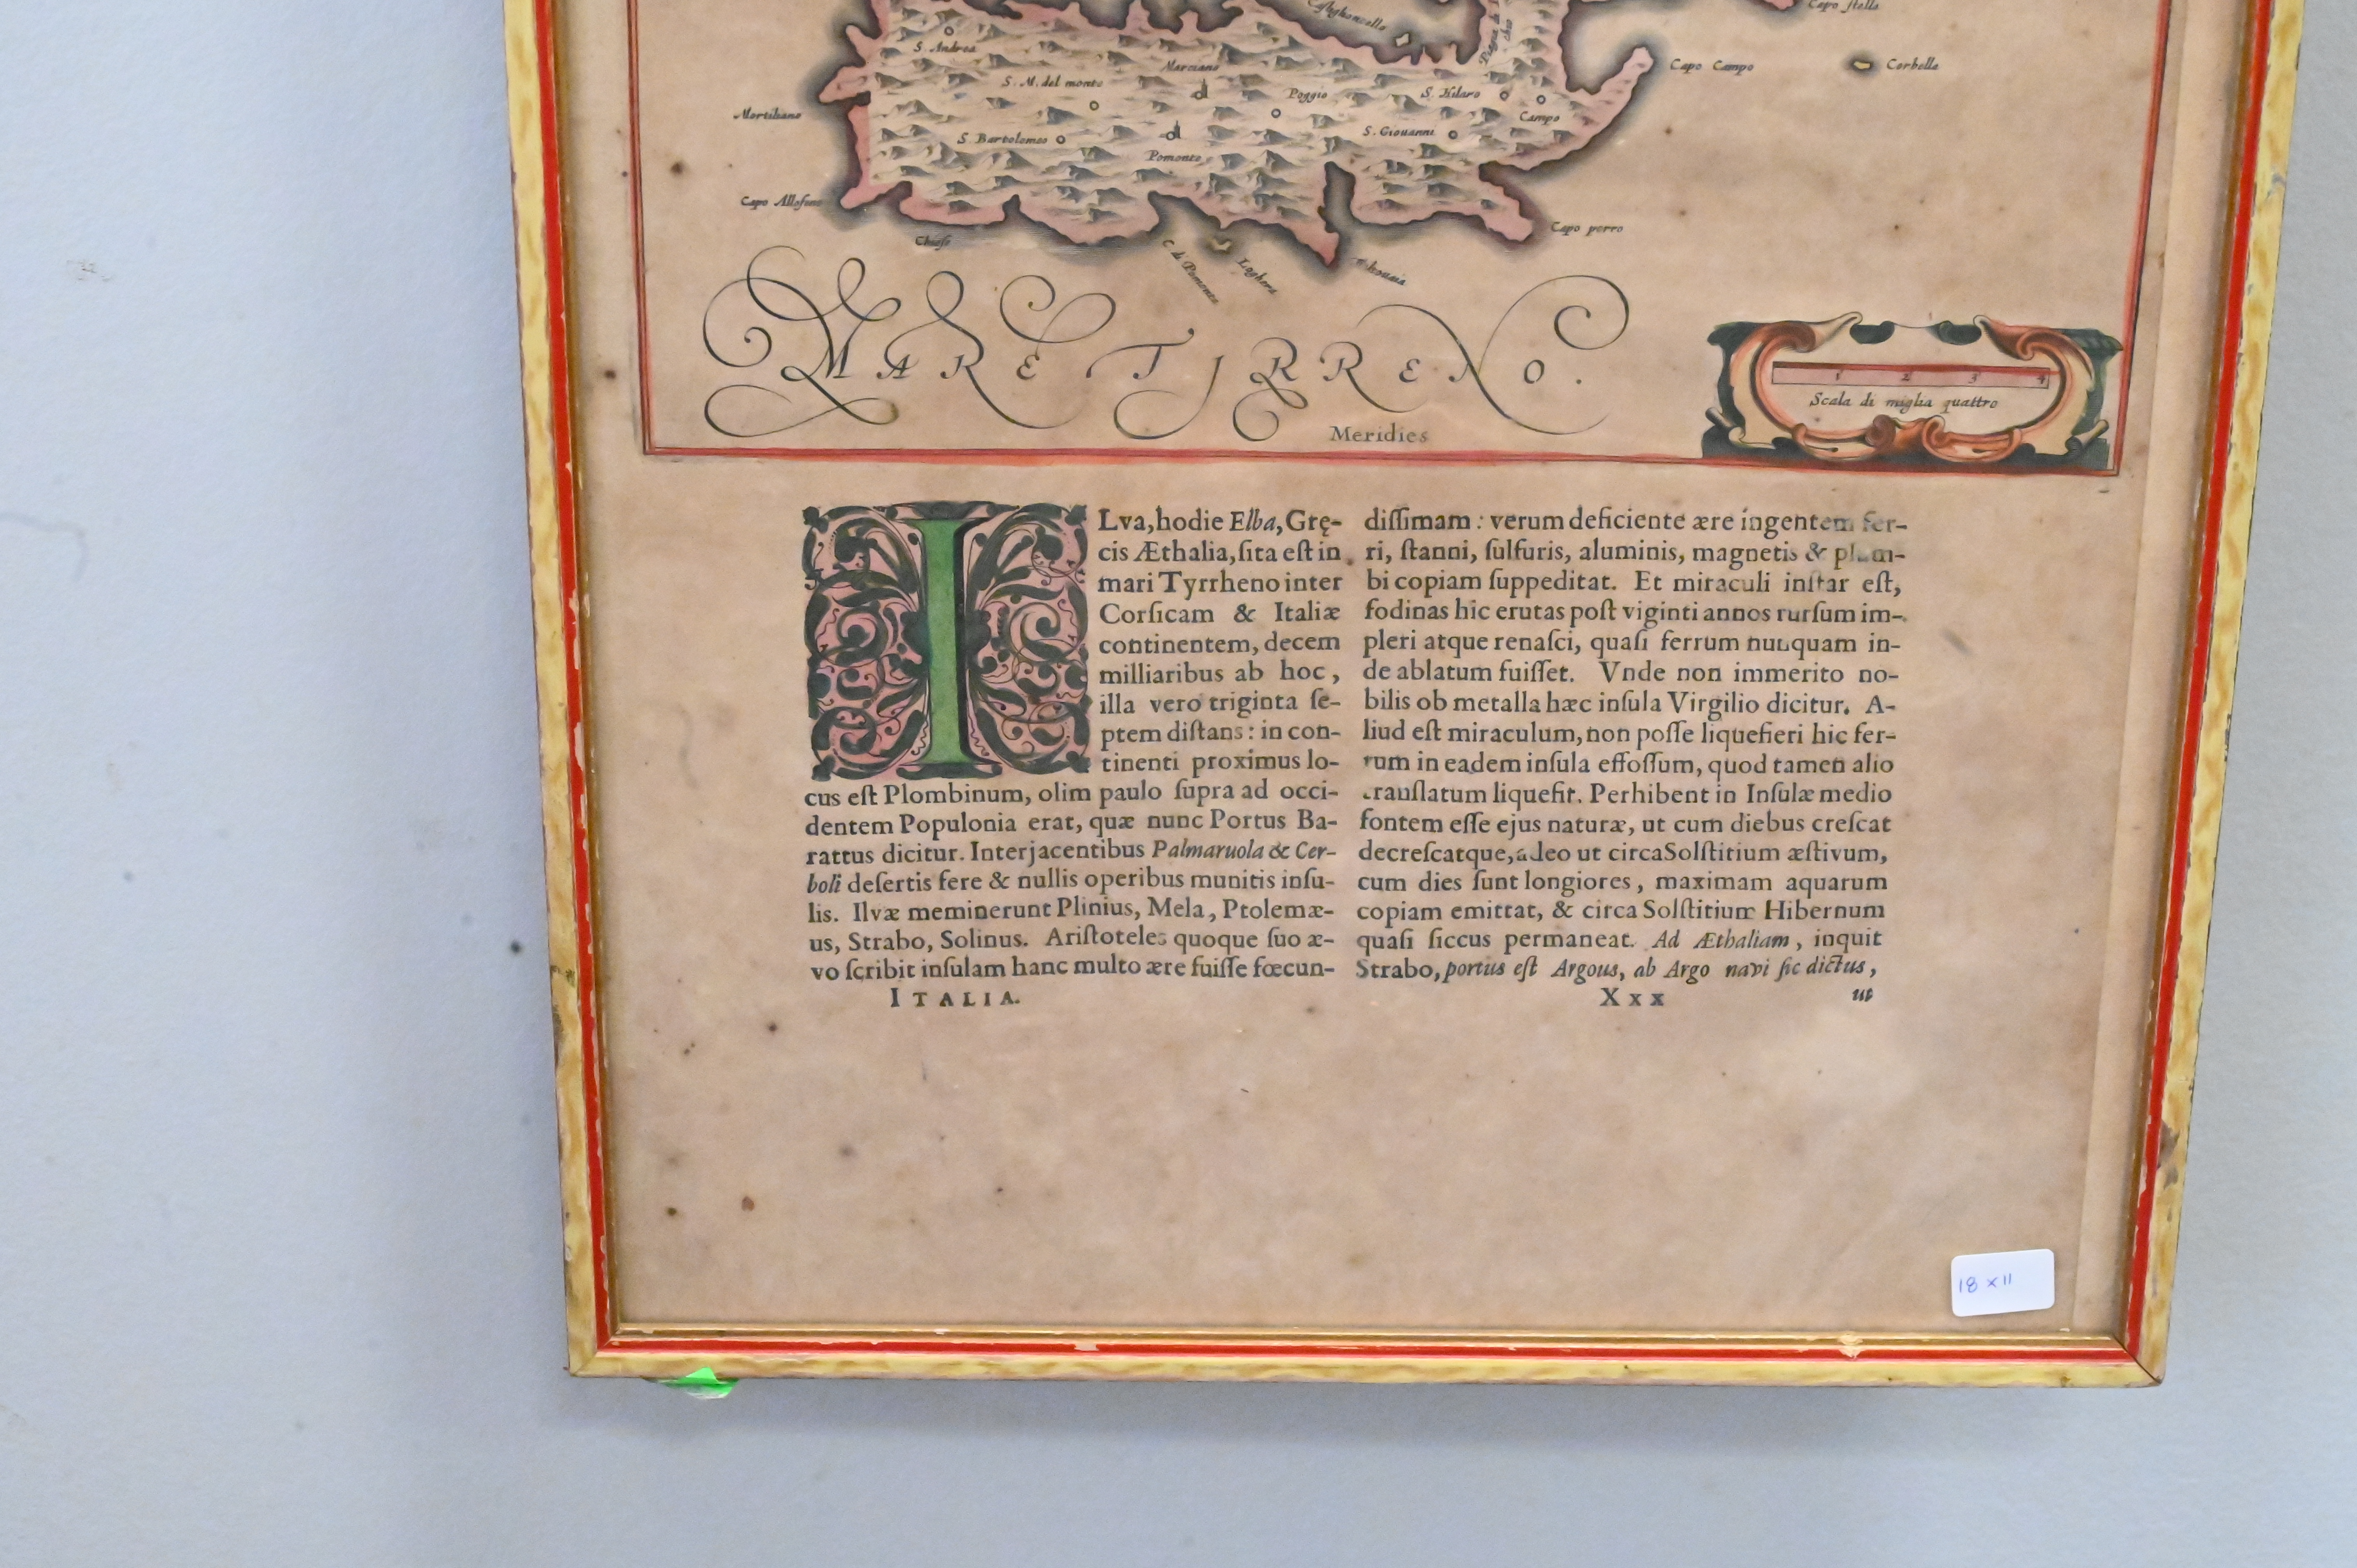 Capo stella
S. Andrea
Marciano
Capo Campo
Corbella
S. M. del monte
Poggio
S. Hilaro
Campo
S. Bartolomeo
S. Giouanni
Pomonte
Chiesi
Capo perro
C. di Pomonte
MARE TJRRENO.
1 2 3 4
Scala di miglia quattro
Meridies
ILva, hodie Elba, Gręcis
cis Æthalia, ſita eſt in
mari Tyrrheno inter
Corſicam & Italiæ
continentem, decem
milliaribus ab hoc,
illa vero triginta ſe-
ptem diſtans: in con-
tinenti proximus lo-
cus eſt Plombinum, olim paulo ſupra ad occi-
dentem Populonia erat, quæ nunc Portus Ba-
rattus dicitur. Interjacentibus Palmaruola & Cer-
boli deſertis fere & nullis operibus munitis inſu-
lis. Ilvæ meminerunt Plinius, Mela, Ptolemæ-
us, Strabo, Solinus. Ariſtoteles quoque ſuo æ-
vo ſcribit inſulam hanc multo ære fuiſſe fœcun-
ITALIA.
diſſimam: verum deficiente ære ingentem fer-
ri, ſtanni, ſulfuris, aluminis, magnetis & plum-
bi copiam ſuppeditat. Et miraculi inſtar eſt,
fodinas hic erutas poſt viginti annos rurſum im-
pleri atque renaſci, quaſi ferrum nunquam in-
de ablatum fuiſſet. Vnde non immerito no-
bilis ob metalla hæc inſula Virgilio dicitur. A-
liud eſt miraculum, non poſſe liquefieri hic fer-
rum in eadem inſula effoſſum, quod tamen alio
tranſlatum liquefit. Perhibent in Inſulæ medio
fontem eſſe ejus naturæ, ut cum diebus creſcat
decreſcatque, adeo ut circa Solſtitium æſtivum,
cum dies ſunt longiores, maximam aquarum
copiam emittat, & circa Solſtitium Hibernum
quaſi ſiccus permaneat. Ad Æthaliam, inquit
Strabo, portus eſt Argous, ab Argo navi ſic dictus,
Xxx ut
18 x 11